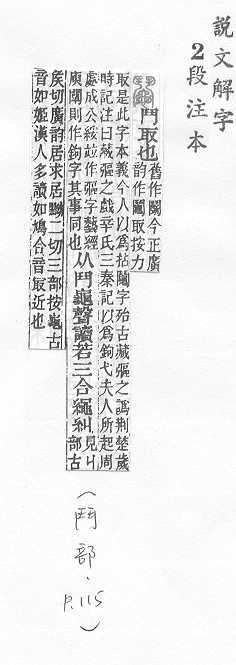 説文解字
2段注本
鬥取也
舊作鬭今正廣
韵作鬮取按力
取是此字本義今人以爲拈鬮字殆古藏彄之譌荆楚歲
時記注曰藏彄之戲辛氏三秦記以爲鉤弋夫人所起周
處成公綏竝作彄字藝經
庾闡則作鉤字其事同也
从鬥龜聲讀若三合繩糾
見丩
部古
矦切廣韵居求居黝二切三部按龜古
音如姬漢人多讀如鳩合音冣近也
(鬥部.P.115)